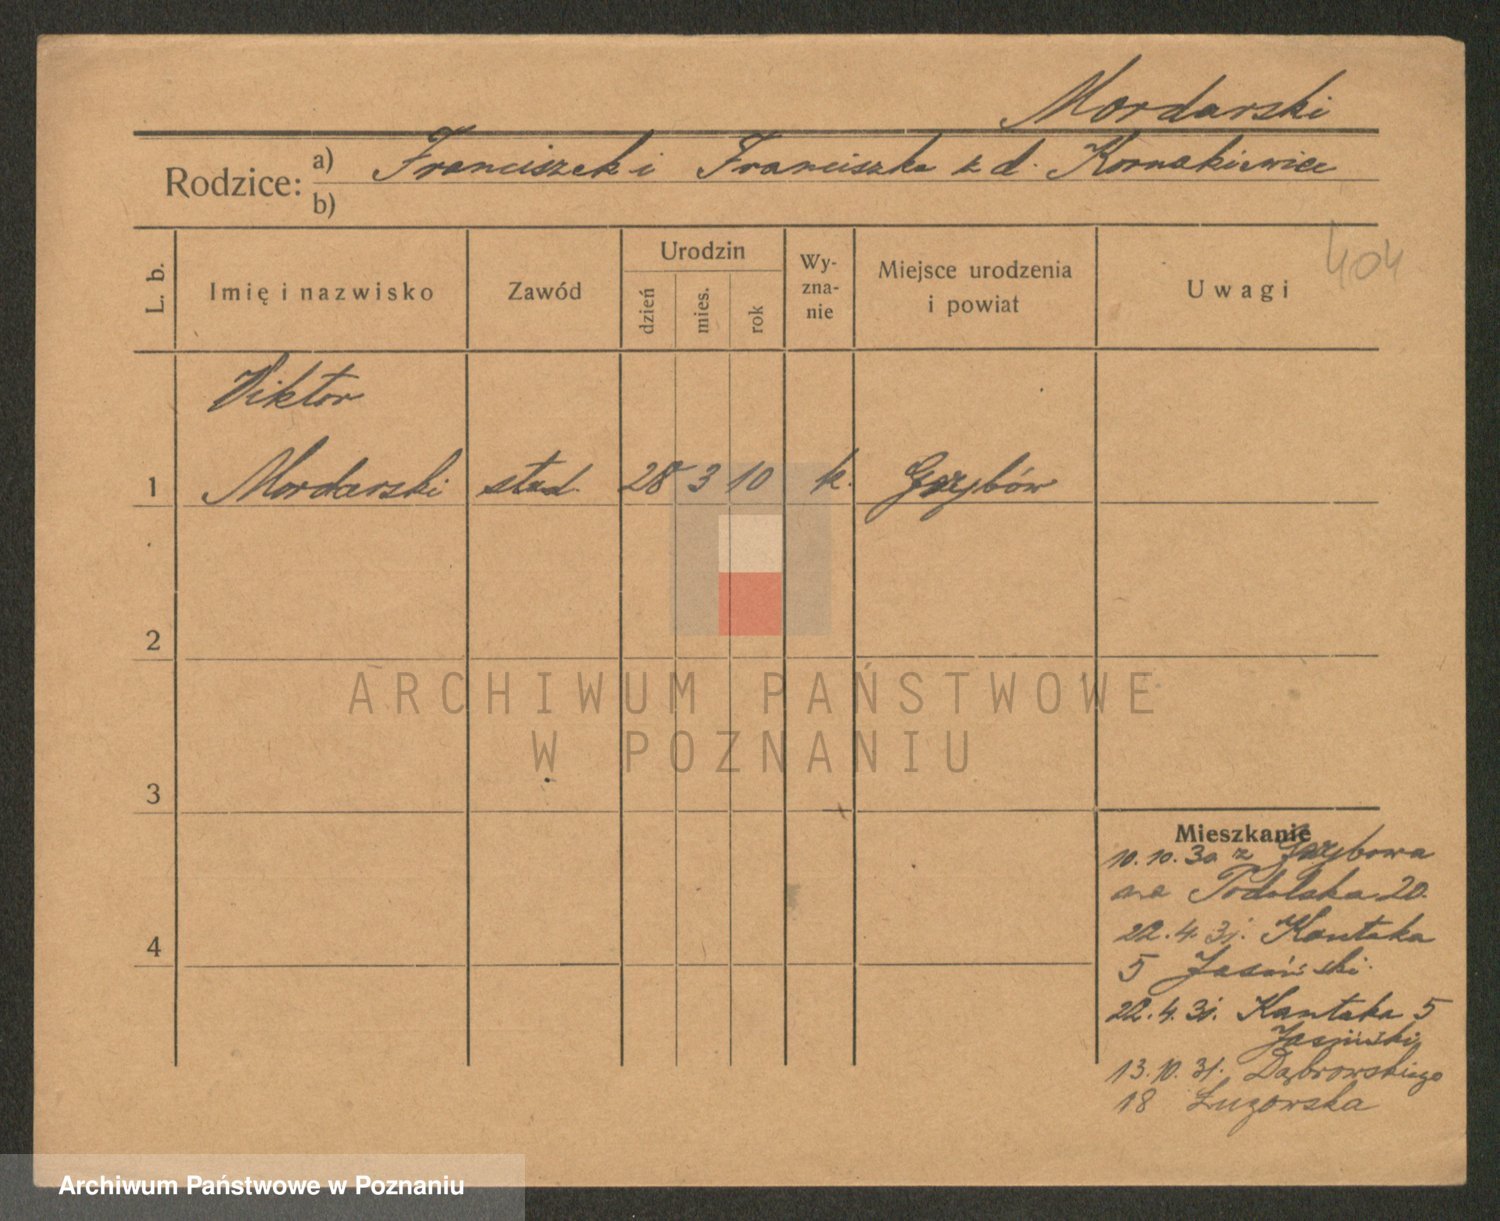 Mordarski
Rodzice: a) Franciszek i Franciszka z d. Kornakiewicz
b)
404
L. b. Imię i nazwisko Zawód Urodzin dzień mies. rok Wy-zna-nie Miejsce urodzenia i powiat Uwagi
Wiktor
1 Mordarski stud. 28 3 10 k. Grzybów
2
ARCHIWUM PAŃSTWOWE
W POZNANIU
3
Mieszkanie
10.10.30 z Grzybowa
na Podolska 20.
4
22.4.31. Kantaka
5 Jasiński.
22.4.31. Kantaka 5
Jasiński
13.10.31. Dąbrowskiego
18 Łuzowska
Archiwum Państwowe w Poznaniu